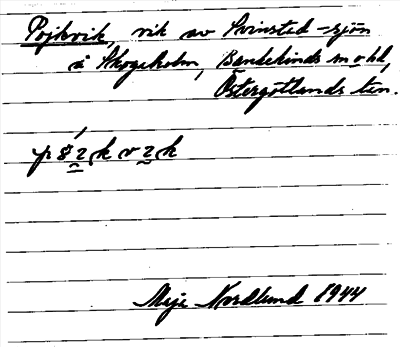 Pojkvik, vik av Svinsted-sjön
å Skogsholm, Bankekinds sn o hd,
Östergötlands län.
Maja Nordlund 1944